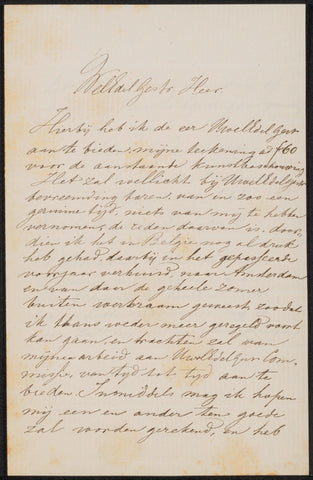 WelEdel Gestr. Heer.
Hierbij heb ik de eer UwelEdel Gestr
aan te bieden, mijne teekening ad ƒ60
voor de aanstaande kunstbeschouwing
Het zal wellicht bij UwelEdelgestr
bevreemding baren, van in zoo een
geruime tijd, niets van mij te hebben
vernomen, de reden daarvan is door,
dien ik het in België nog al druk
heb gehad, daarbij in het gepasseerde
voorjaar verhuisd naar Amsterdam
en van daar de geheele zomer
buiten werkzaam geweest, zoodat
ik thans weder meer geregeld voort
kan gaan, en trachten zal van
mijne arbeid aan UwelEdelGestr Com-
missie, van tijd tot tijd aan te
bieden Inmiddels mag ik hopen
mij een en ander ten goede
zal worden gerekend, en heb